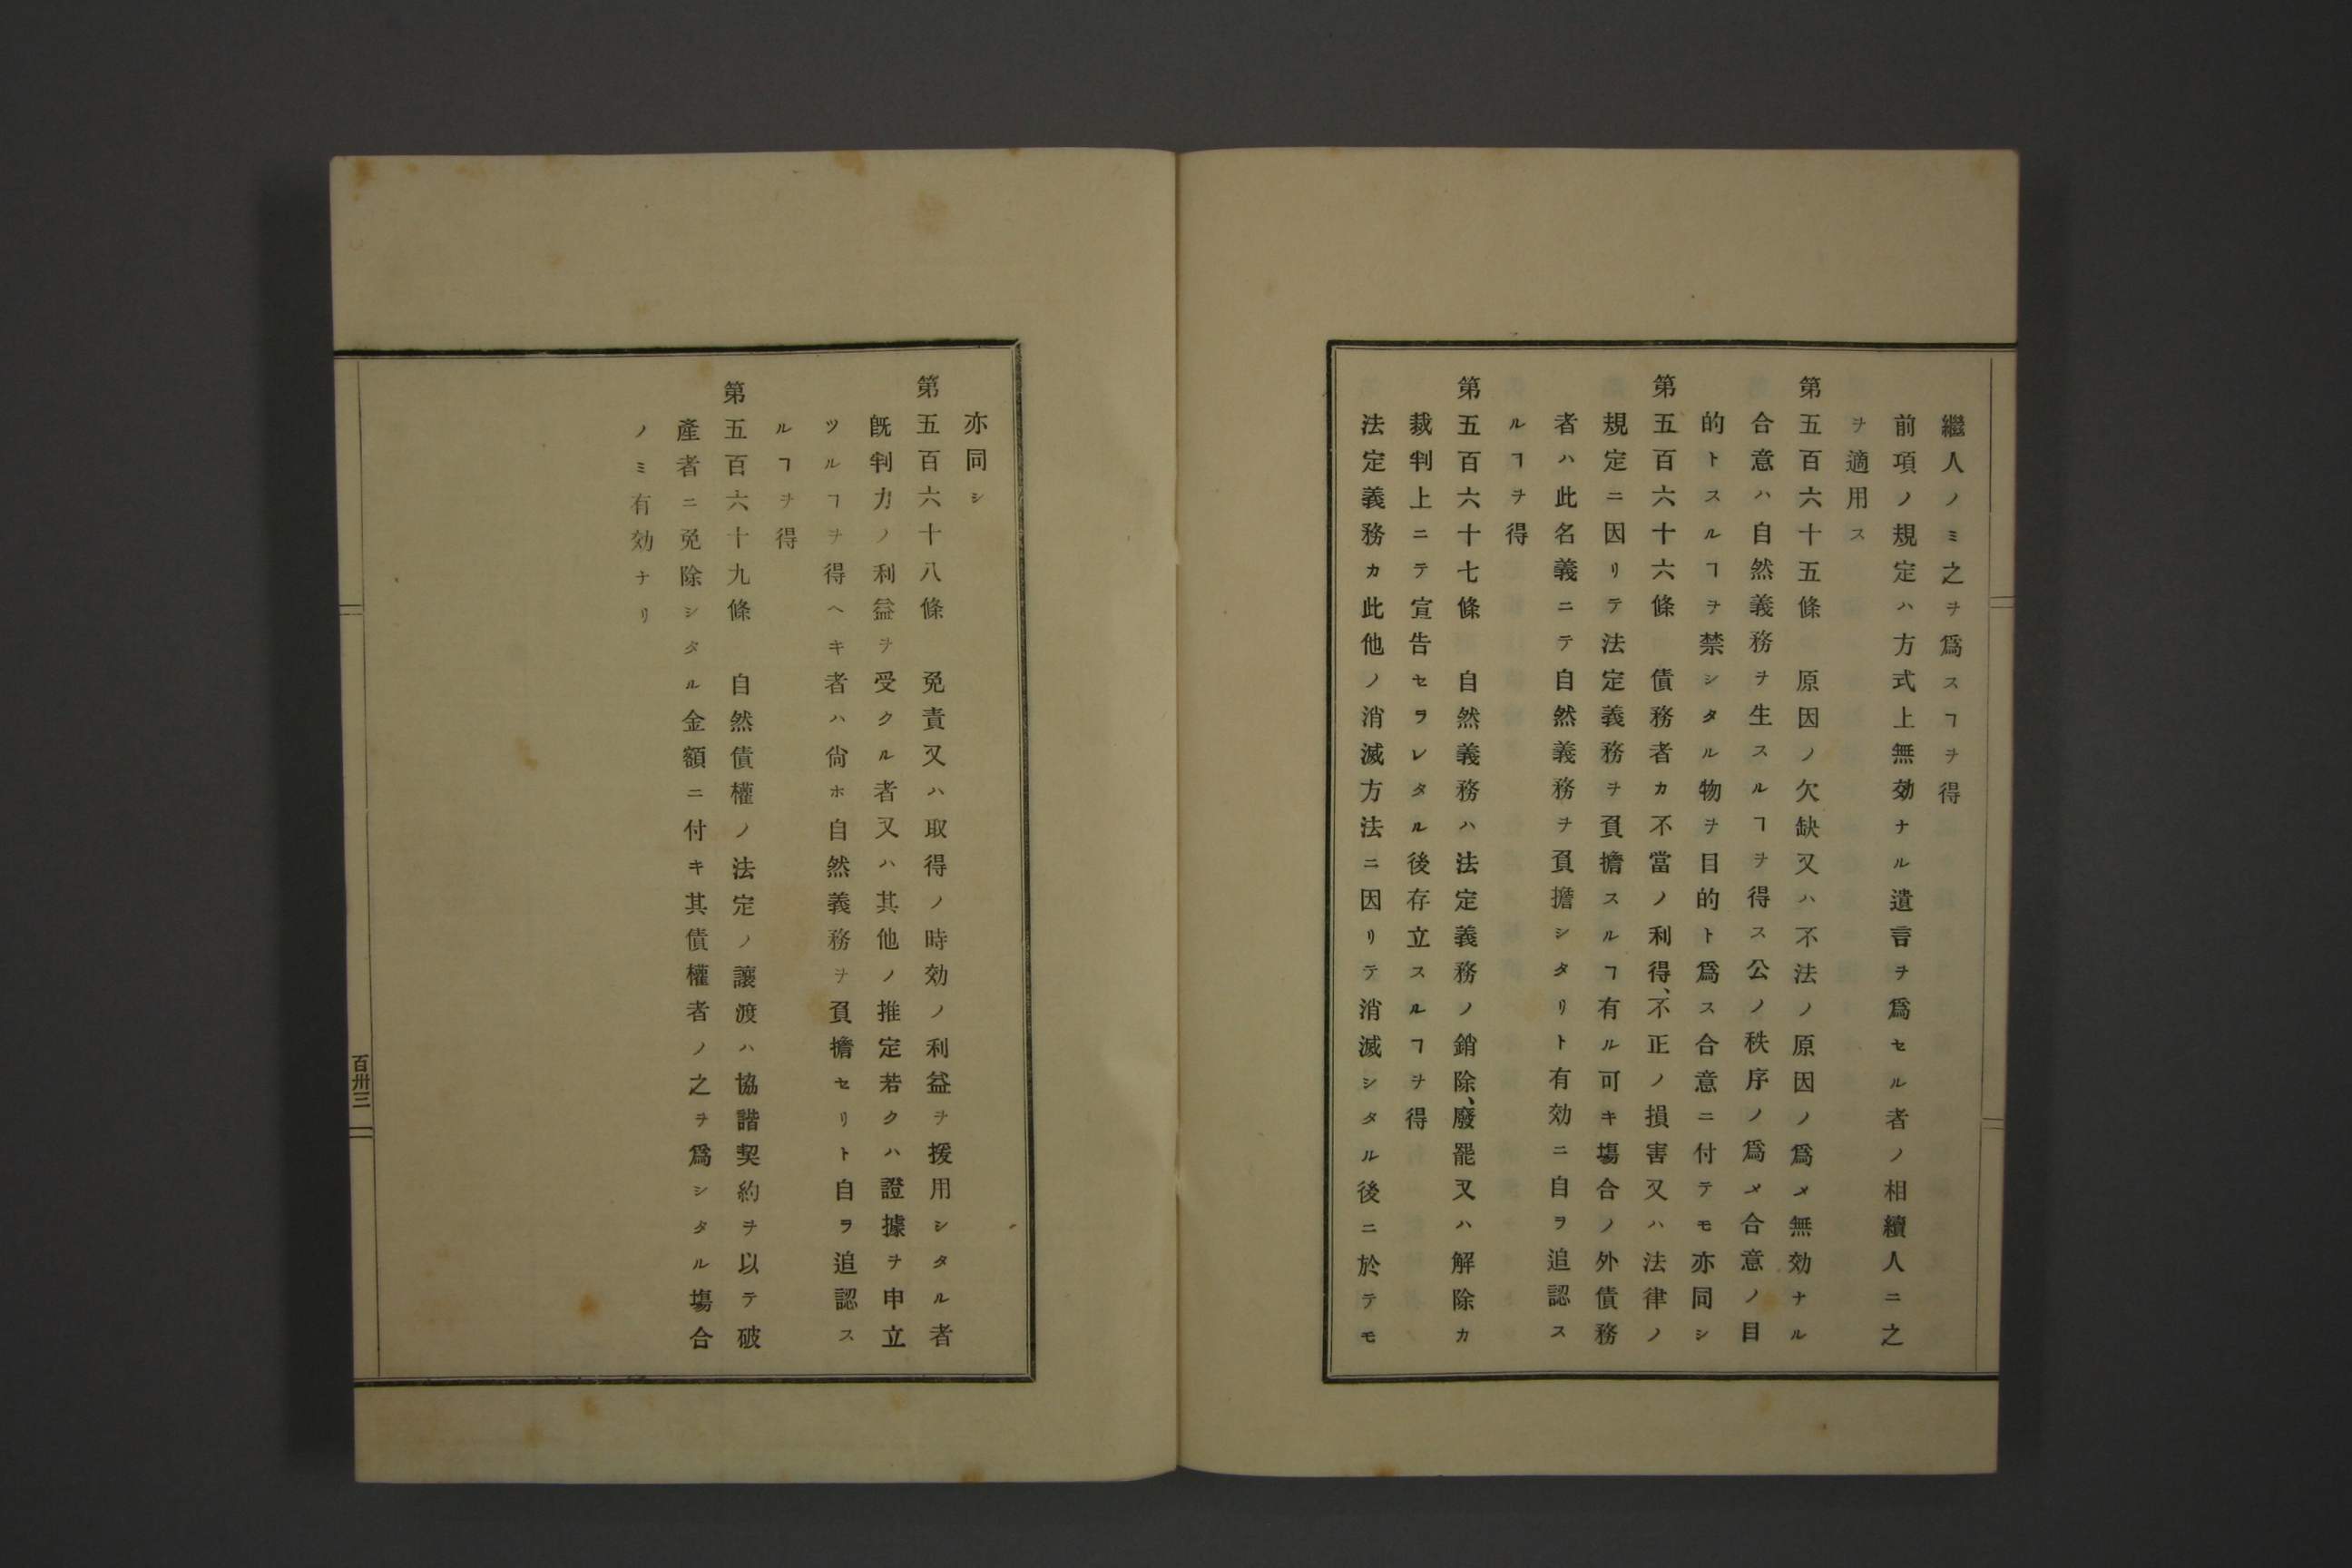 繼人ノミ之ヲ爲スヿヲ得
前項ノ規定ハ方式上無効ナル遺言ヲ爲セル者ノ相續人ニ之
ヲ適用ス
第五百六十五條　原因ノ欠缺又ハ不法ノ原因ノ爲メ無効ナル
合意ハ自然義務ヲ生スルヿヲ得ス公ノ秩序ノ爲メ合意ノ目
的トスルヿヲ禁シタル物ヲ目的ト爲ス合意ニ付テモ亦同シ
第五百六十六條　債務者カ不當ノ利得、不正ノ損害又ハ法律ノ
規定ニ因リテ法定義務ヲ負擔スルヿ有ル可キ塲合ノ外債務
者ハ此名義ニテ自然義務ヲ負擔シタリト有効ニ自ヲ追認ス
ルヿヲ得
第五百六十七條　自然義務ハ法定義務ノ銷除、廢罷又ハ解除カ
裁判上ニテ宣告セヲレタル後存立スルヿヲ得
法定義務カ此他ノ消滅方法ニ因リテ消滅シタル後ニ於テモ
亦同シ
第五百六十八條　免責又ハ取得ノ時効ノ利益ヲ援用シタル者
既判力ノ利益ヲ受クル者又ハ其他ノ推定若クハ證據ヲ申立
ツルヿヲ得ヘキ者ハ尙ホ自然義務ヲ負擔セリト自ヲ追認ス
ルヿヲ得
第五百六十九條　自然債權ノ法定ノ讓渡ハ協諧契約ヲ以テ破
產者ニ免除シタル金額ニ付キ其債權者ノ之ヲ爲シタル塲合
ノミ有効ナリ
百卅三